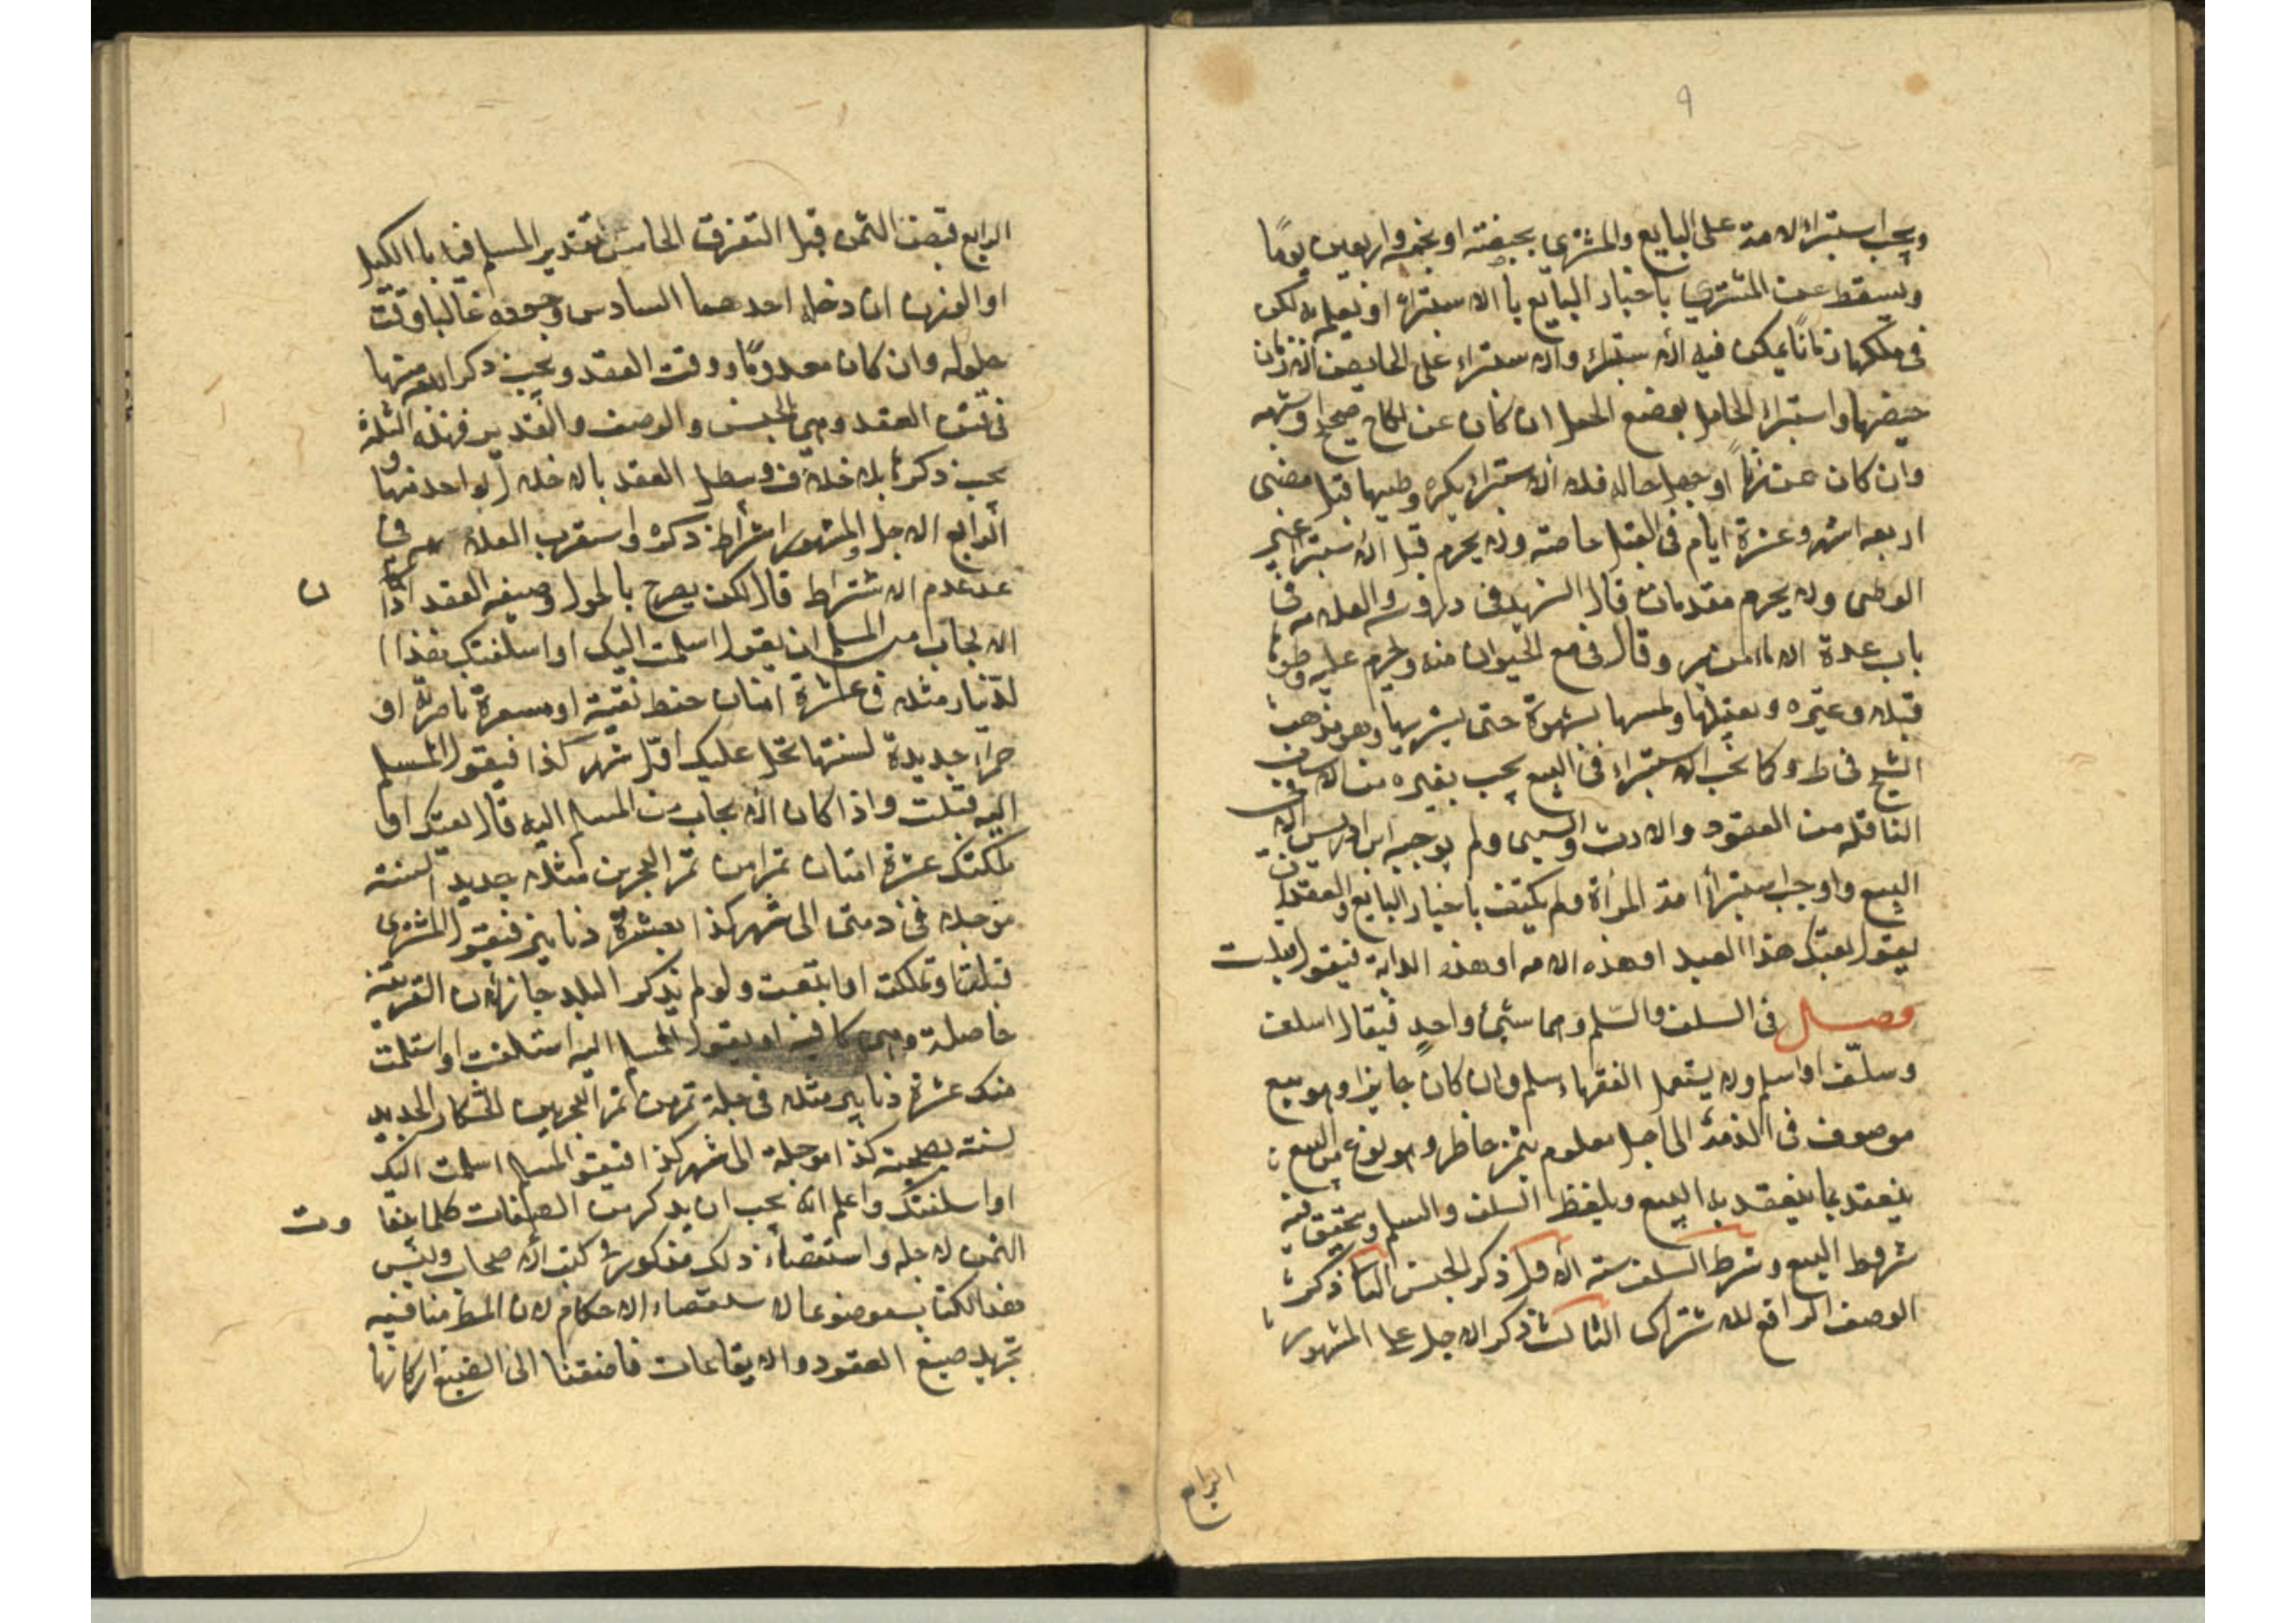 ٩
ويجب استبراء الامة على البايع والمشتري بحيضة او بخمسة واربعين يومًا
ويسقط عن المشتري باخبار البايع بالاستبراء او نعلم به لكن
في ملكهما زمانًا يمكن فيه الاستبراء ولا استبراء على الحايض الا زمان
حيضها واستبراء الحامل بوضع الحمل ان كان عن نكاح صحيح او شبهه
وان كان عن زنا او جهل حاله فلا استبراء بكره وطيها قبل مضى
اربعه اشهر وعشرة ايام في القبل خاصته ولا يحرم قبل الاستبراء غير
الوطى ولا يحرم مقدماته قال الشهيد في دروسه والعلامه في
باب عدة الاماء من وقال في مع الحيوان منه ويحرم عليه وطوها
قبلا وغيره وتقبيلها ولمسها بشهوة حتى يستبريها وهو مذهب
الشيخ في ط وكما يجب الاستبراء في البيع يجب بغيره من الاسباب
الناقله من العقود والارث والسبى ولم يوجبه ابن ادريس الا في
البيع واوجب استبراء امة المراة ولم يكتف باخبار البايع والعقد ان
يقول بعتك هذا العبد او هذه الامه او هذه الدابة فيقول قبلت
فصل في السلف والسّلم وهما شيئ واحدٍ فيقال اسلف
وسلّف او اسلم ولا يستعمل الفقهاء سلم وان كان جايزا وهو بيع
موصوف في الذمة الى اجل معلوم بثمن حاضر وهو نوع من البيع
ينعقد بما ينعقد به البيع وبلفظ السلف والسلم ويتحقق فيه
شروط البيع وشرط السلف ستة الاول ذكر الجنس الثاني ذكر
الوصف الرافع للاشتراك الثالث ذكر الاجل على المشهور
الرابع
الرابع قبض الثمن قبل التفرق الخامس تقدير المسلم فيه بالكيل
او الوزن ان دخله احدهما السادس وجوده غالبا وقت
حلوله وان كان معدومًا وقت العقد ويجب ذكر اربعة منها
في متن العقد وهي الجنس والوصف والتقدير فهذه الثلاثة
يجب ذكرها بلا خلاف ويبطل العقد بالاخلال لواحد منها
الرابع الاجل والمشهور اشتراط ذكره واستقرب العلامه في
عد عدم الاشتراط قال لكن يصرح بالحلول وصيغه العقد اذا
ن
الايجاب من المسلم ان يقول اسلمت اليك او اسلفتك هذا
الدّينار مثلا في عشرة امنان حنطه نقيّة او مسعرة ناصريّة او
حمراء جديدة لسنتها تحل عليك اوّل شهر كذا فيقول المسلم
اليه قبلت واذا كان الايجاب من المسلم اليه قال بعتك او
ملكتك عشرة امنان تمرا من تمر البحرين مثلا جديد السنته
موجله في ذمتى الى شهر كذا بعشرة دنانير فيقول المشترى
قبلت او تملكت او ابتعت ولو لم يذكر البلد جاز لان القرينة
حاصلة وهي كافية او يقول المسلم اليه استلفت او استلمت
منك عشرة دنانير مثلا في جلة تمر من تمر البحرين الجديد
لسنته كذا موجلة الى شهر كذا فيقول المسلم اسلمت اليك
او اسلفتك واعلم انه يجب ان يذكر من الصفات كلما يتفا
وت
الثمن لاجله واستقصاء ذلك مذكور في كتب الاصحاب وليس
هذا الكتاب موضوعا لاستقصاء الاحكام لان المط منا فيه
تجريد صيغ العقود والايقاعات فاضفنا الى الصيغ اركانها